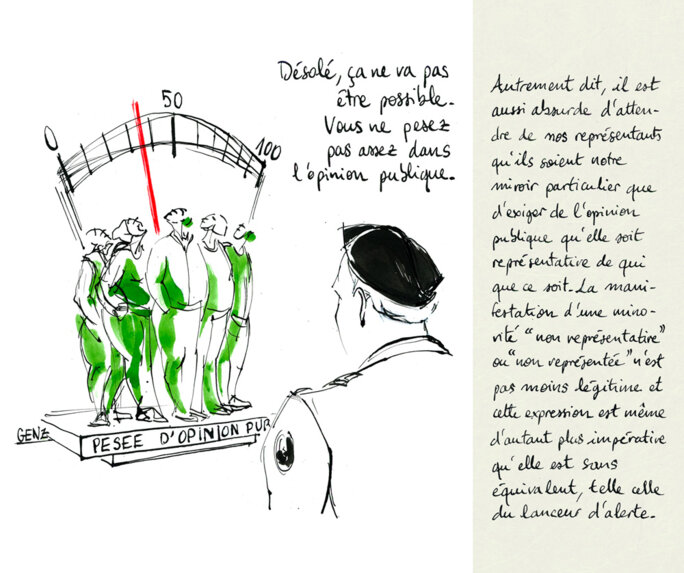 Désolé, ça ne va pas
être possible.
Vous ne pesez
pas assez dans
l'opinion publique.
0
50
100
GENZ
PESEE D'OPINION PUB
Autrement dit, il est
aussi absurde d'atten-
dre de nos représentants
qu'ils soient notre
miroir particulier que
d'exiger de l'opinion
publique qu'elle soit
représentative de qui
que ce soit. La mani-
festation d'une mino-
rité "non représentative"
ou "non représentée" n'est
pas moins légitime et
cette expression est même
d'autant plus impérative
qu'elle est sans
équivalent, telle celle
du lanceur d'alerte.